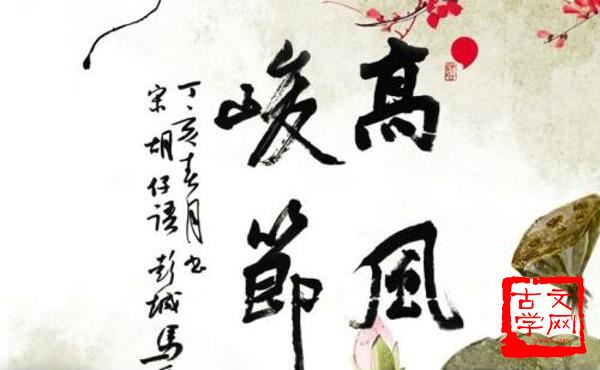 高風
峻節
丁亥春月书
宋胡仔语彭城馬
古文
学网